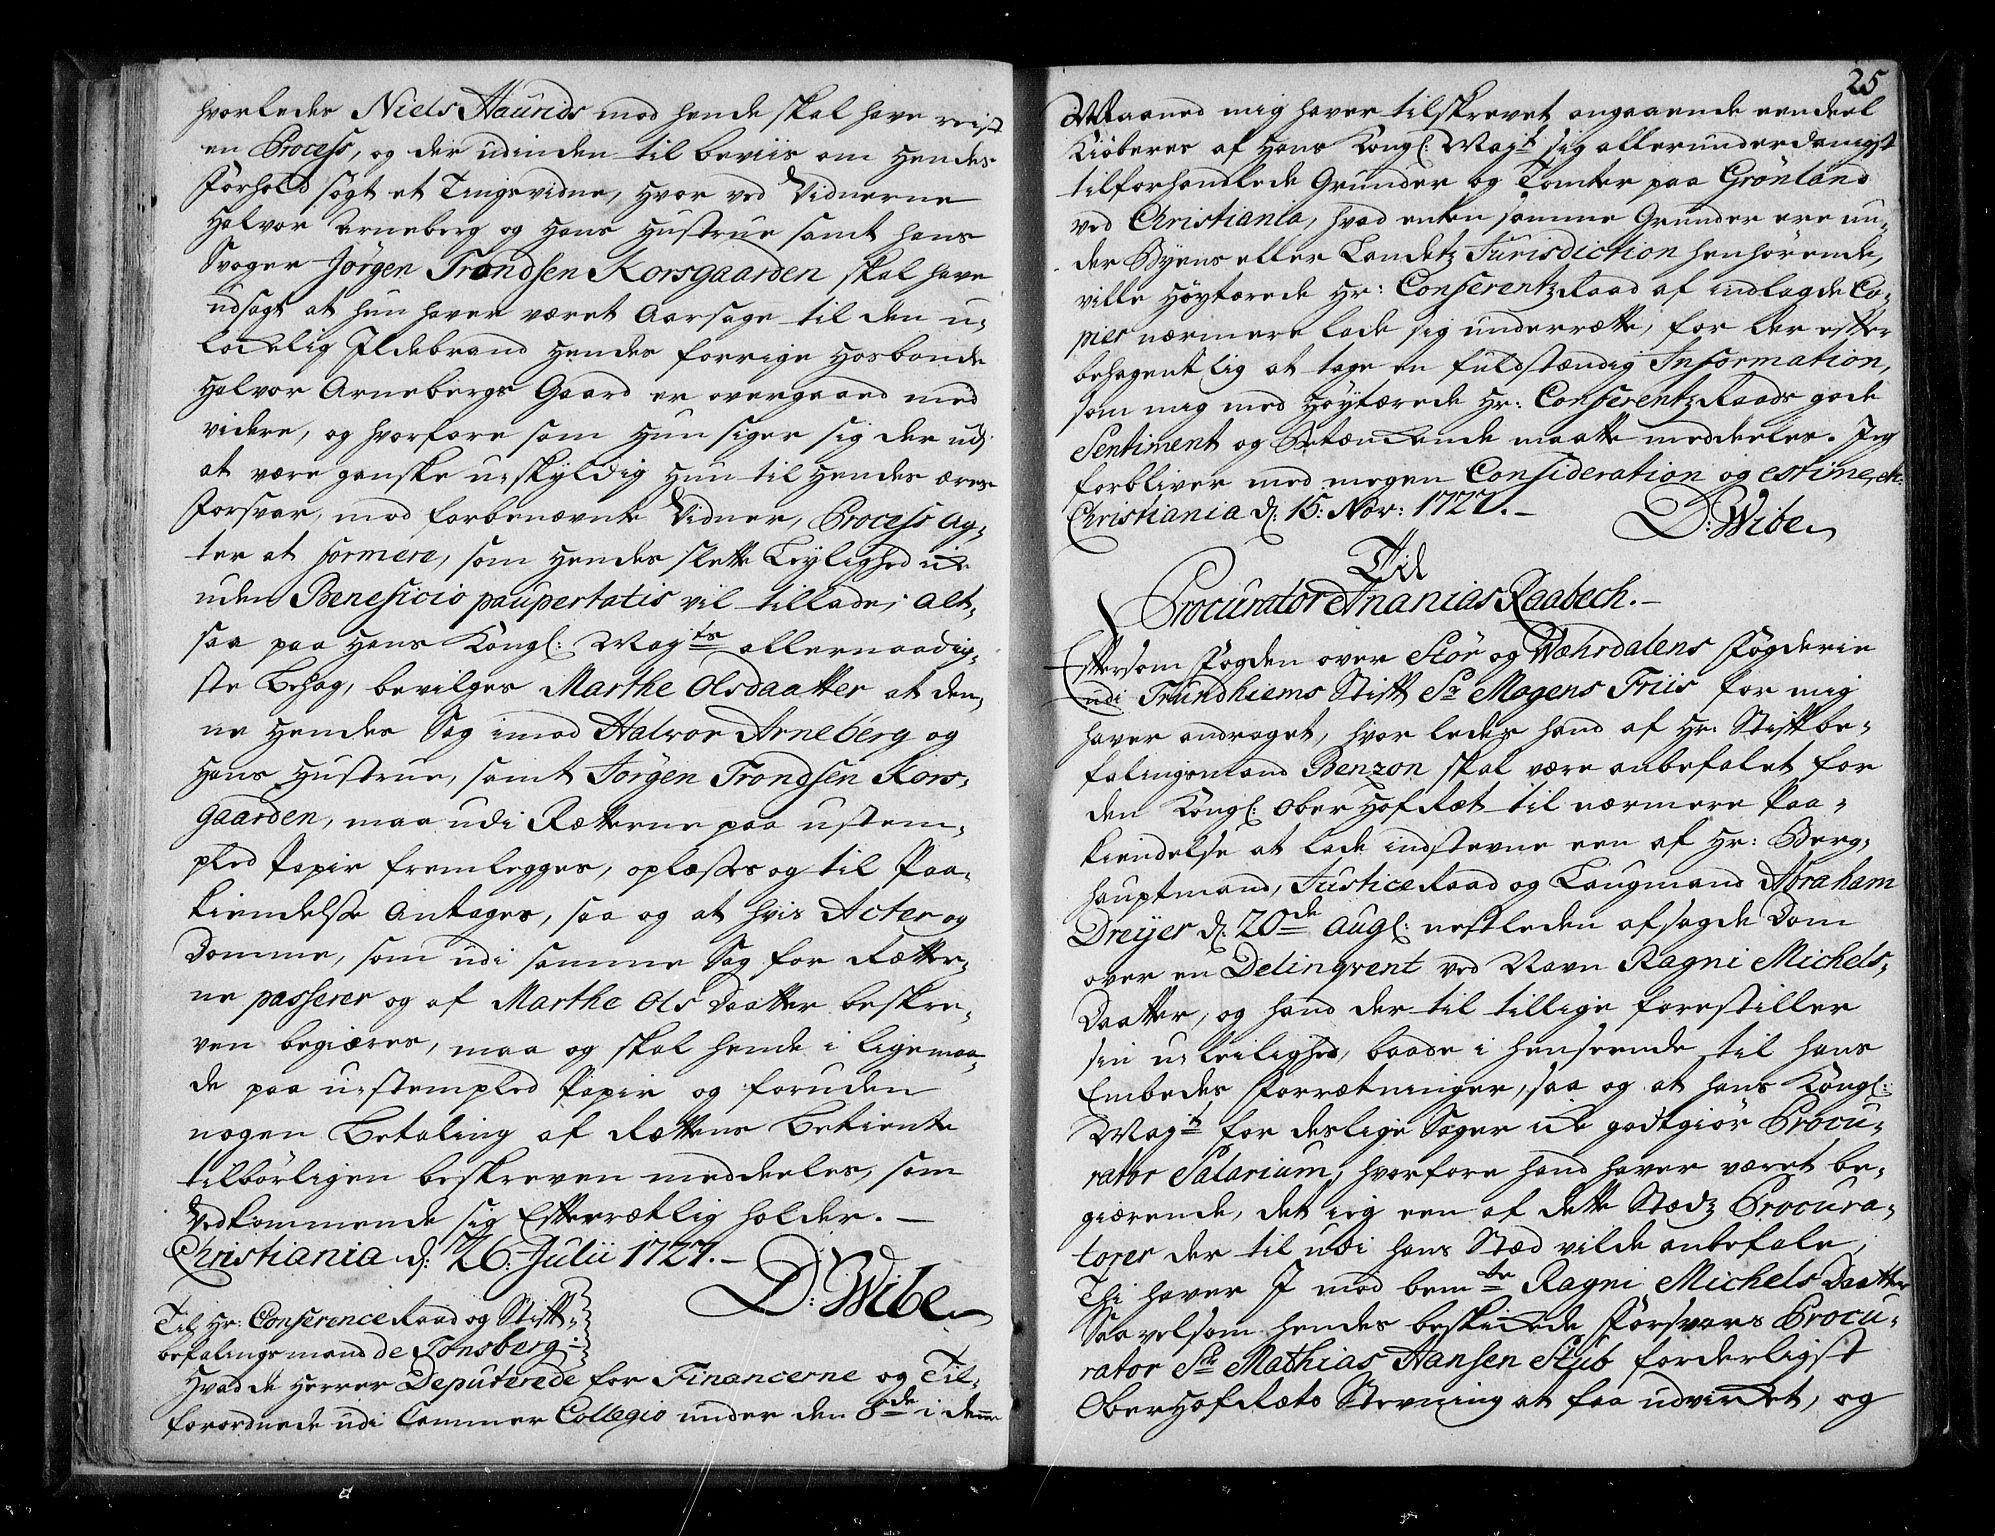 hvorledes Niels Haunds mod hende skal have reist
en Process, og der udinden til beviis om hendes
Forhold søgt et Tingsvidne, hvor ved Vidnerne
Halvor Arneberg og hans Hustrue samt hans
Svoger Jörgen Trondsen Korsgaarden skal have
udsagt at hun haver været Aarsage til den u-
lÿkelig Ildebrand hendes forrige Hosbonde
Halvor Arnebergs Gaard er overgaaed med
videre, og hvorfore som hun siger sig der udj
at være ganske u-skyldig hun til hendes æres
Forsvar, mod forbenævnte Vidner, Process ag-
ter at formere, som hendes slette Leylighed icke
uden Beneficio paupertatis vil tillade; alt-
saa paa Hans Kongl: Maÿts allernaadig-
ste Behag, bevilges Marthe Olsdaatter at den-
ne hendes Sag imod Halvor Arneberg og
hans Hustrue, samt Jörgen Trondsen Kors-
gaarden, maa udi Rætterne paa ustem-
pled Papir fremlegges, oplæses og til Paa-
kiendelse antages, saa og at hvis Acter og
Domme, som udi samme Sag for Rætter-
ne passerer og af Marthe Ols Daatter beskre-
ven begiæres, maa og skal hende i ligemaa-
de paa u-stempled Papir og foruden
nogen Betaling af Rættens Betiente
tilbörligen beskreven meddeeles, som
Vedkommende sig Efterrætlig holder. —
Christiania d: 26: Julii 1727. —
D: Wibe
Til Hr: Conference Raad og Stift-
befalingsmand de Tonsberg:
Hvad de Herrer Deputerede for Financerne og Til-
forordnede udi Cammer Collegio under den 8de i denne
25
Maaned mig haver tilskrevet angaaende eendeel
Kiöberes af Hans Kongl: Majt sig allerunderdanigst
tilforhandlede Grunder og Tomter paa Grönland
ved Christiania, hvad enten samme Grunder ere un-
der Byens eller Landetz Jurisdiction henhörende,
ville Höytærede Hr: Conferentz Raad af indlagde Co-
pier nærmere lade sig underrætte, for der efter
behagentlig at tage en fuldstændig Information,
som mig med Höytærede Hr: Conferentz Raads gode
Sentiment og Betænckende maatte meddeeles. Jeg
forbliver med megen Consideration og estime, etc:
Christiania d: 15: Nov: 1727. —
D: Wibe
Til
Procurator Ananias Raabech. —
Eftersom Fogden over Stör og Wæhrdalens Fögderie
udi Trundhiems Stift Sr Mogens Friis for mig
haver andraget, hvorledes hand af Hr: Stiftbe-
falingsmand Benzon skal være anbefalet for
den Kongl: Ober Hof Ræt til nærmere Paa-
kiendelse at lade indstevne een af Hr: Berg-
hauptmand, Justice Raad og Laugmand Abraham
Dreÿer d: 20de Augl: nestleden afsagde Dom
over en Delinqvent ved Navn Ragni Michels-
Daatter, og hand der til tillige forestiller
sin u-leilighed, baade i henseende til hans
Embedes Forrætninger, saa og at Hans Kongl:
Majt for deslige Sager icke godtgiör Procu-
rator Salarium; hvorfore hand haver været be-
giærende, det ieg een af dette Stedz Procura-
torer der til udi hans Sted vilde anbefale;
Thi haver I mod bemte Ragni Michels Daatter
Saavelsom hendes beskickede Forsvars Procu-
rator Sr Mathias Hansen Stub forderligst
Ober Hof Rets Stevning at faa udvircket, og